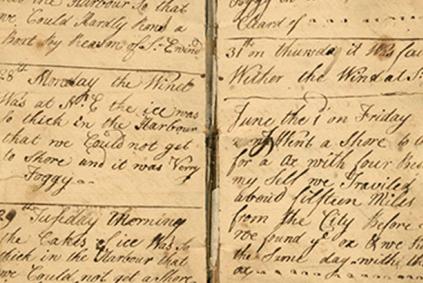 the Harbour So that
we Could Hardly
boat by Reason of
28th Monday the Wind
Was at the ice was
So thick in the Harbour
that we Could not get
to Shore and it was Very
Foggy
29th Tuesday Morning
the Cakes of ice Was So
thick in the Harbour that
we Could not get a Shore
Foggy on
of
31th on thursday it was
Wither the Wind at
June the 1 on Friday
Went a Shore to
for a ox with four
my Self we Traviled
abroid fifteen Miles
from the City Before
we found ye ox & we
the Same day with the
ox